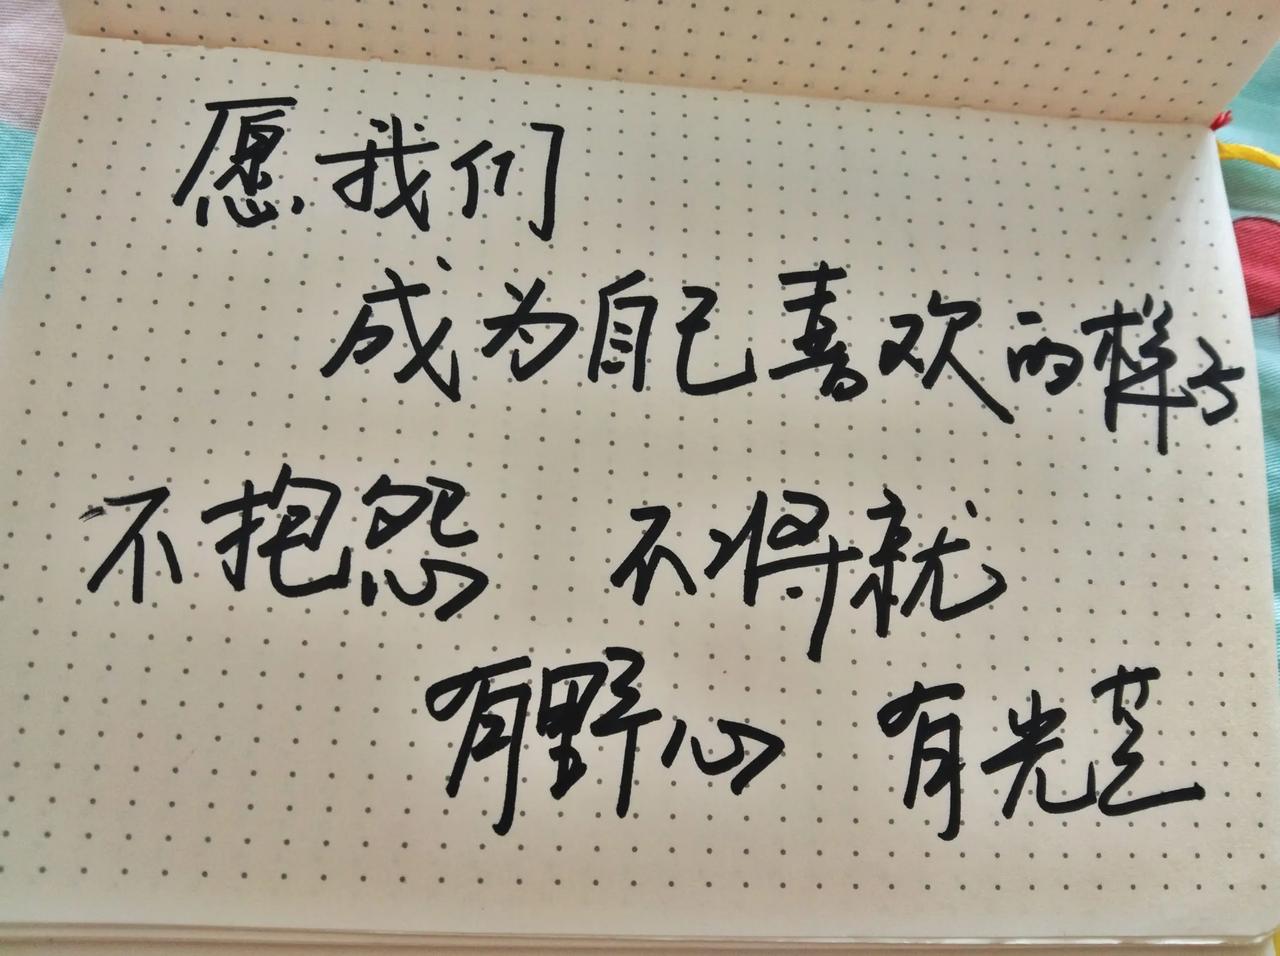 愿我们
成为自己喜欢的样子
不抱怨 不将就
有野心 有光芒